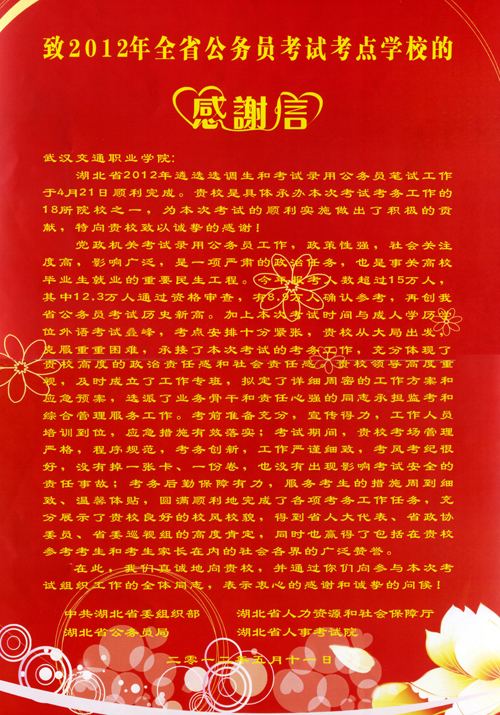 致2012年全省公务员考试考点学校的
感謝信
武汉交通职业学院:
湖北省2012年遴选选调生和考试录用公务员笔试工作
于4月21日顺利完成。贵校是具体承办本次考试考务工作的
18所院校之一，为本次考试的顺利实施做出了积极的贡
献，特向贵校致以诚挚的感谢！
党政机关考试录用公务员工作，政策性强，社会关注
度高，影响广泛，是一项严肃的政治任务，也是事关高校
毕业生就业的重要民生工程。今年报考人数超过15万人，
其中12.3万人通过资格审查，有8.9万人确认参考，再创我
省公务员考试历史新高。加上本次考试时间与成人学历学
位外语考试叠峰，考点安排十分紧张，贵校从大局出发，
克服重重困难，承接了本次考试的考务工作，充分体现了
贵校高度的政治责任感和社会责任感。贵校领导高度重
视，及时成立了工作专班，拟定了详细周密的工作方案和
应急预案，选派了业务骨干和责任心强的同志承担监考和
综合管理服务工作。考前准备充分，宣传得力，工作人员
培训到位，应急措施有效落实；考试期间，贵校考场管理
严格，程序规范，考务创新，工作严谨细致，考风考纪很
好，没有掉一张卡、一份卷，也没有出现影响考试安全的
责任事故；考务后勤保障有力，服务考生的措施周到细
致、温馨体贴，圆满顺利地完成了各项考务工作任务，充
分展示了贵校良好的校风校貌，得到省人大代表、省政协
委员、省委巡视组的高度肯定，同时也赢得了包括在贵校
参考考生和考生家长在内的社会各界的广泛赞誉。
在此，我们真诚地向贵校，并通过你们向参与本次考
试组织工作的全体同志，表示衷心的感谢和诚挚的问候！
中共湖北省委组织部 湖北省人力资源和社会保障厅
湖北省公务员局 湖北省人事考试院
二零一二年五月十一日